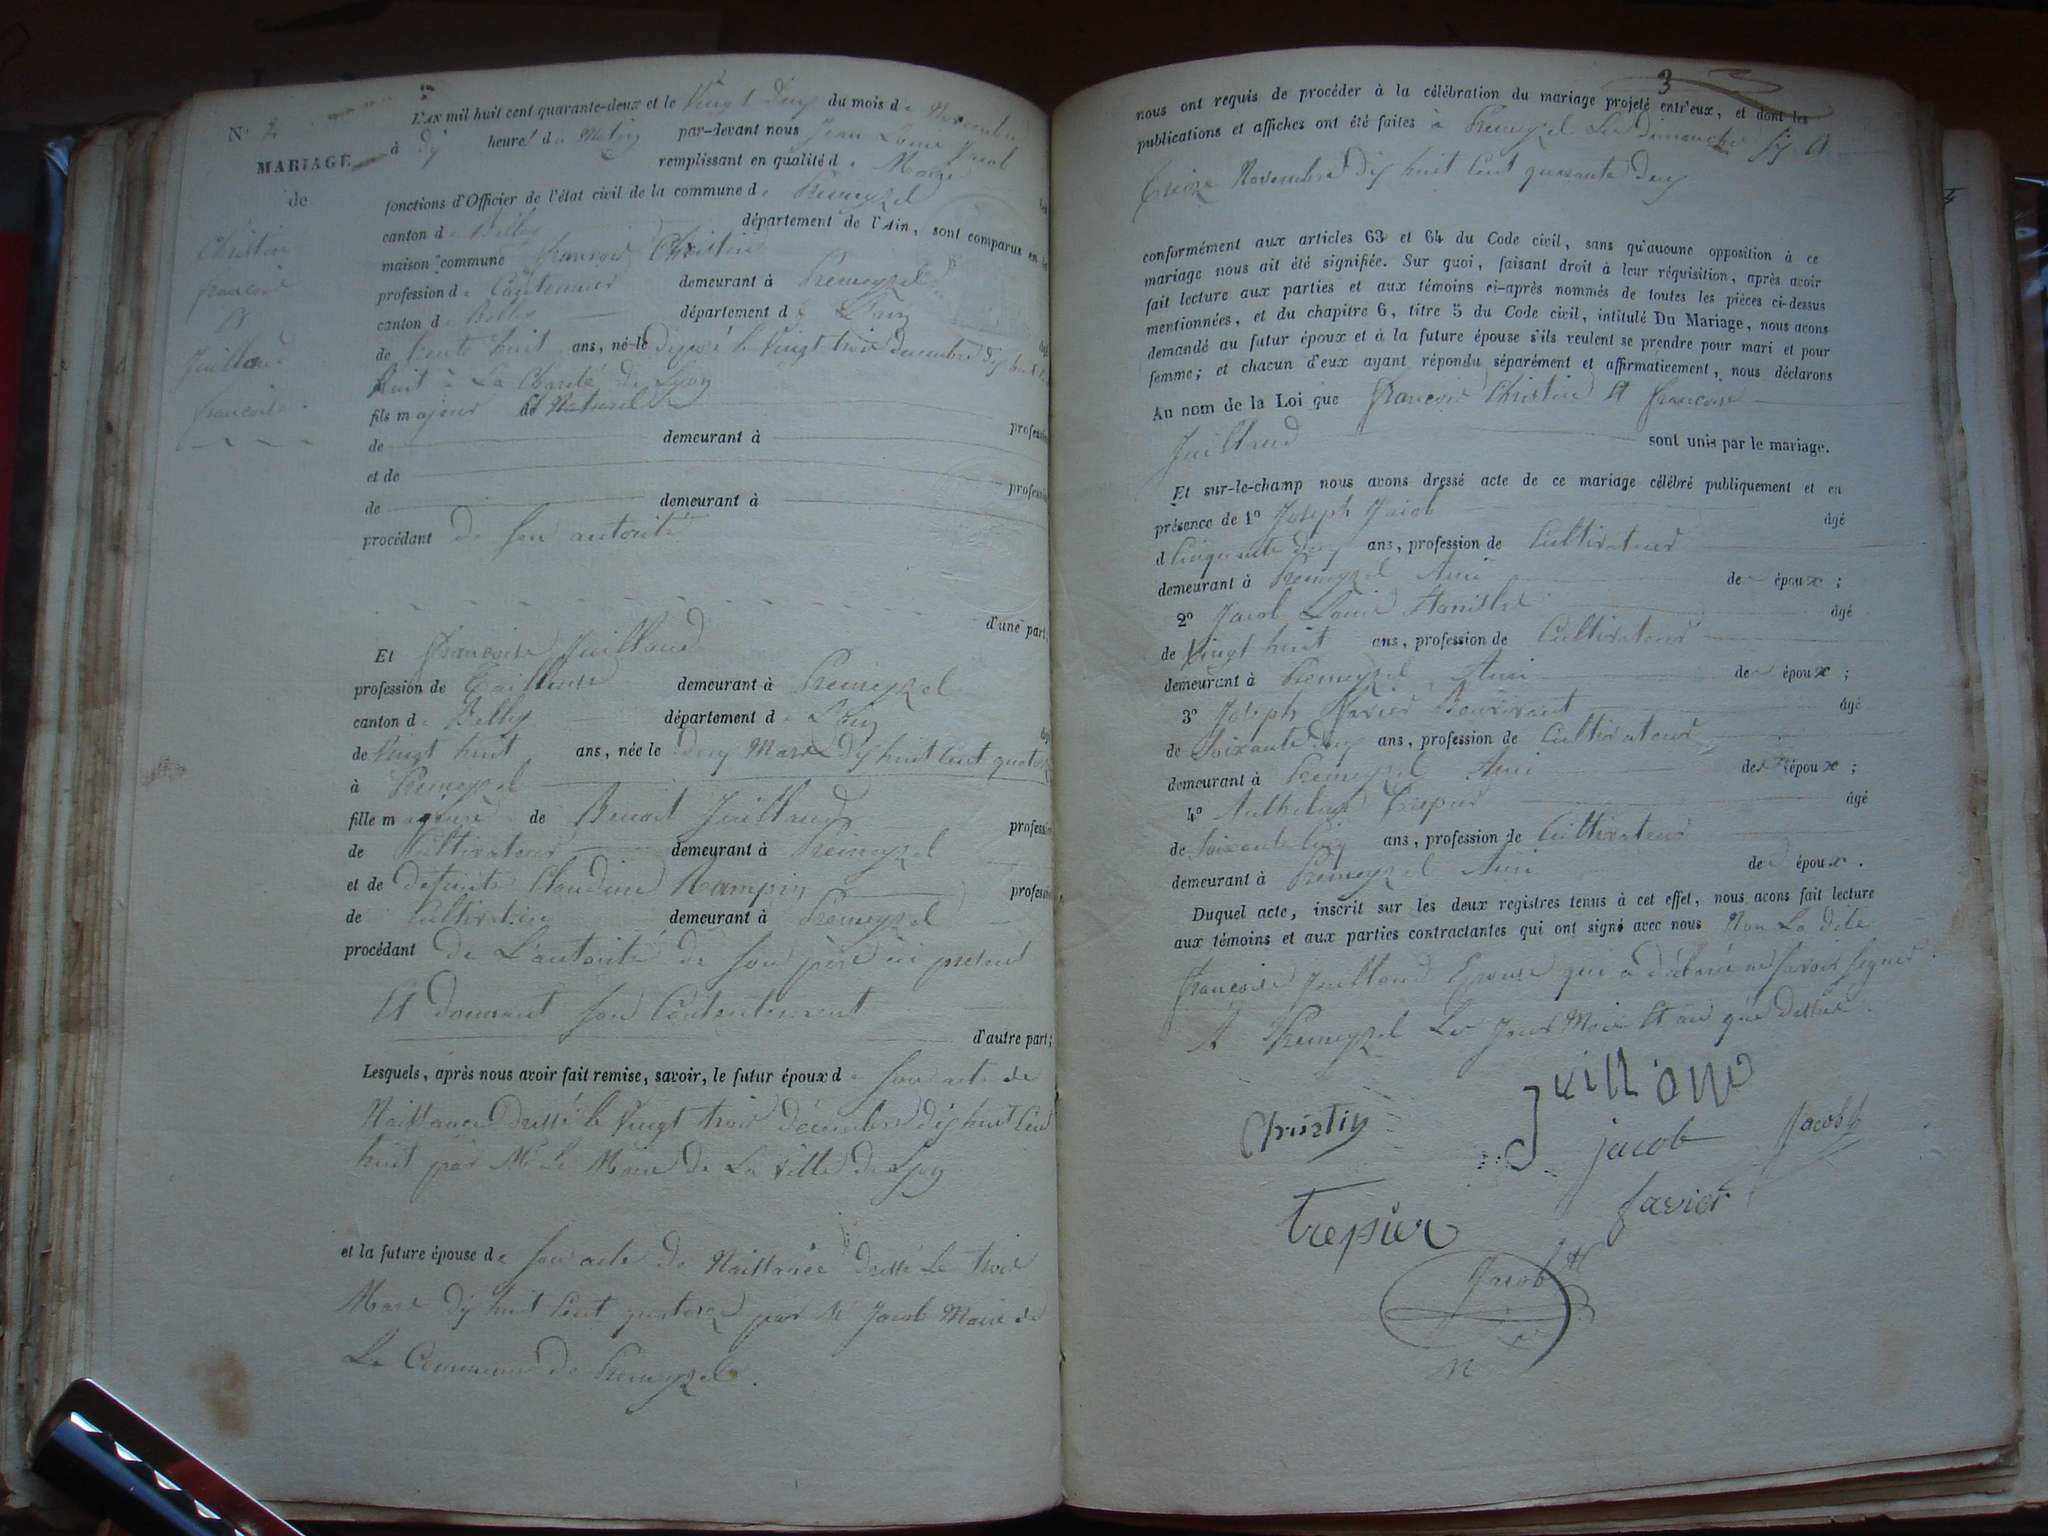 N° 2
MARIAGE
de
Christin
françois
Et
Juilland
françoise.
L'AN mil huit cent quarante-deux et le Vingt deux du mois de Novembre
à dix heure du Matin par-devant nous Jean Louis Jacob
remplissant en qualité de Maire les
fonctions d'Officier de l'état civil de la commune de Premeyzel
canton de Belley département de l'Ain, sont comparus en la
maison commune françois Christin
profession de Cantonnier demeurant à Premeyzel
canton de Belley département de L'ain
âgé
de trente huit ans, né le déposé le Vingt trois decembre dix huit cent
huit à La Charité de Lyon
fils majeur et Naturel
profession
de demeurant à
et de
profession
de demeurant à
procédant de son autorité
d'une part;
Et françoise Juilland
profession de Tailleuse demeurant à Premeyzel
canton de Belley département de L'ain
âgé
de Vingt huit ans, née le deux Mars dix huit cent quatorze
à Premeyzel
fille majeure de Benoit Juilland
profession
de Cultivateur demeurant à Premeyzel
et de defunte Claudine Rampin profession
de Cultivatrice demeurant à Premeyzel
procédant de L'autorité de son père ici présent
Et donnant son Contentement
d'autre part;
Lesquels, après nous avoir fait remise, savoir, le futur époux de son acte de
Naissance dressé le Vingt trois décembre dix huit Cent
huit par Mr Le Maire de La Ville de Lyon
et la future épouse de son acte de Naissance dressé Le trois
Mars dix huit Cent quatorze par Mr Jacob Maire de
La Commune de Premeyzel.
3
nous ont requis de procéder à la célébration du mariage projeté entr'eux, et dont les
publications et affiches ont été faites à Premeyzel Les dimanches six Et
treize Novembre dix huit Cent quarante deux
conformément aux articles 63 et 64 du Code civil, sans qu'aucune opposition à ce
mariage nous ait été signifiée. Sur quoi, faisant droit à leur réquisition, après avoir
fait lecture aux parties et aux témoins ci-après nommés de toutes les pièces ci-dessus
mentionnées, et du chapitre 6, titre 5 du Code civil, intitulé Du Mariage, nous avons
demandé au futur époux et à la future épouse s'ils veulent se prendre pour mari et pour
femme; et chacun d'eux ayant répondu séparément et affirmativement, nous déclarons
Au nom de la Loi que françois Christin Et françoise
Juilland sont unis par le mariage.
Et sur-le-champ nous avons dressé acte de ce mariage célébré publiquement et en
présence de 1° Joseph Jacob âgé
d Cinquante deux ans, profession de Cultivateur
demeurant à Premeyzel Ami des époux;
2° Jacob Louis Stanislas âgé
de Vingt huit ans, profession de Cultivateur
demeurant à Premeyzel Ami des époux;
3° Joseph Xavier âgé
de Soixante deux ans, profession de Cultivateur
demeurant à Premeyzel Ami des époux;
4° Anthelme Trepier âgé
de Soixante Cinq ans, profession de Cultivateur
demeurant à Premeyzel Ami des époux.
Duquel acte, inscrit sur les deux registres tenus à cet effet, nous avons fait lecture
aux témoins et aux parties contractantes qui ont signé avec nous Non La dite
françoise Juilland Epouse qui a déclaré ne savoir signer.
A Premeyzel Les Jour Mois Et an que dessus.
Juilland
Christin
jacob
Jacob
Trepier
Xavier
Jacob